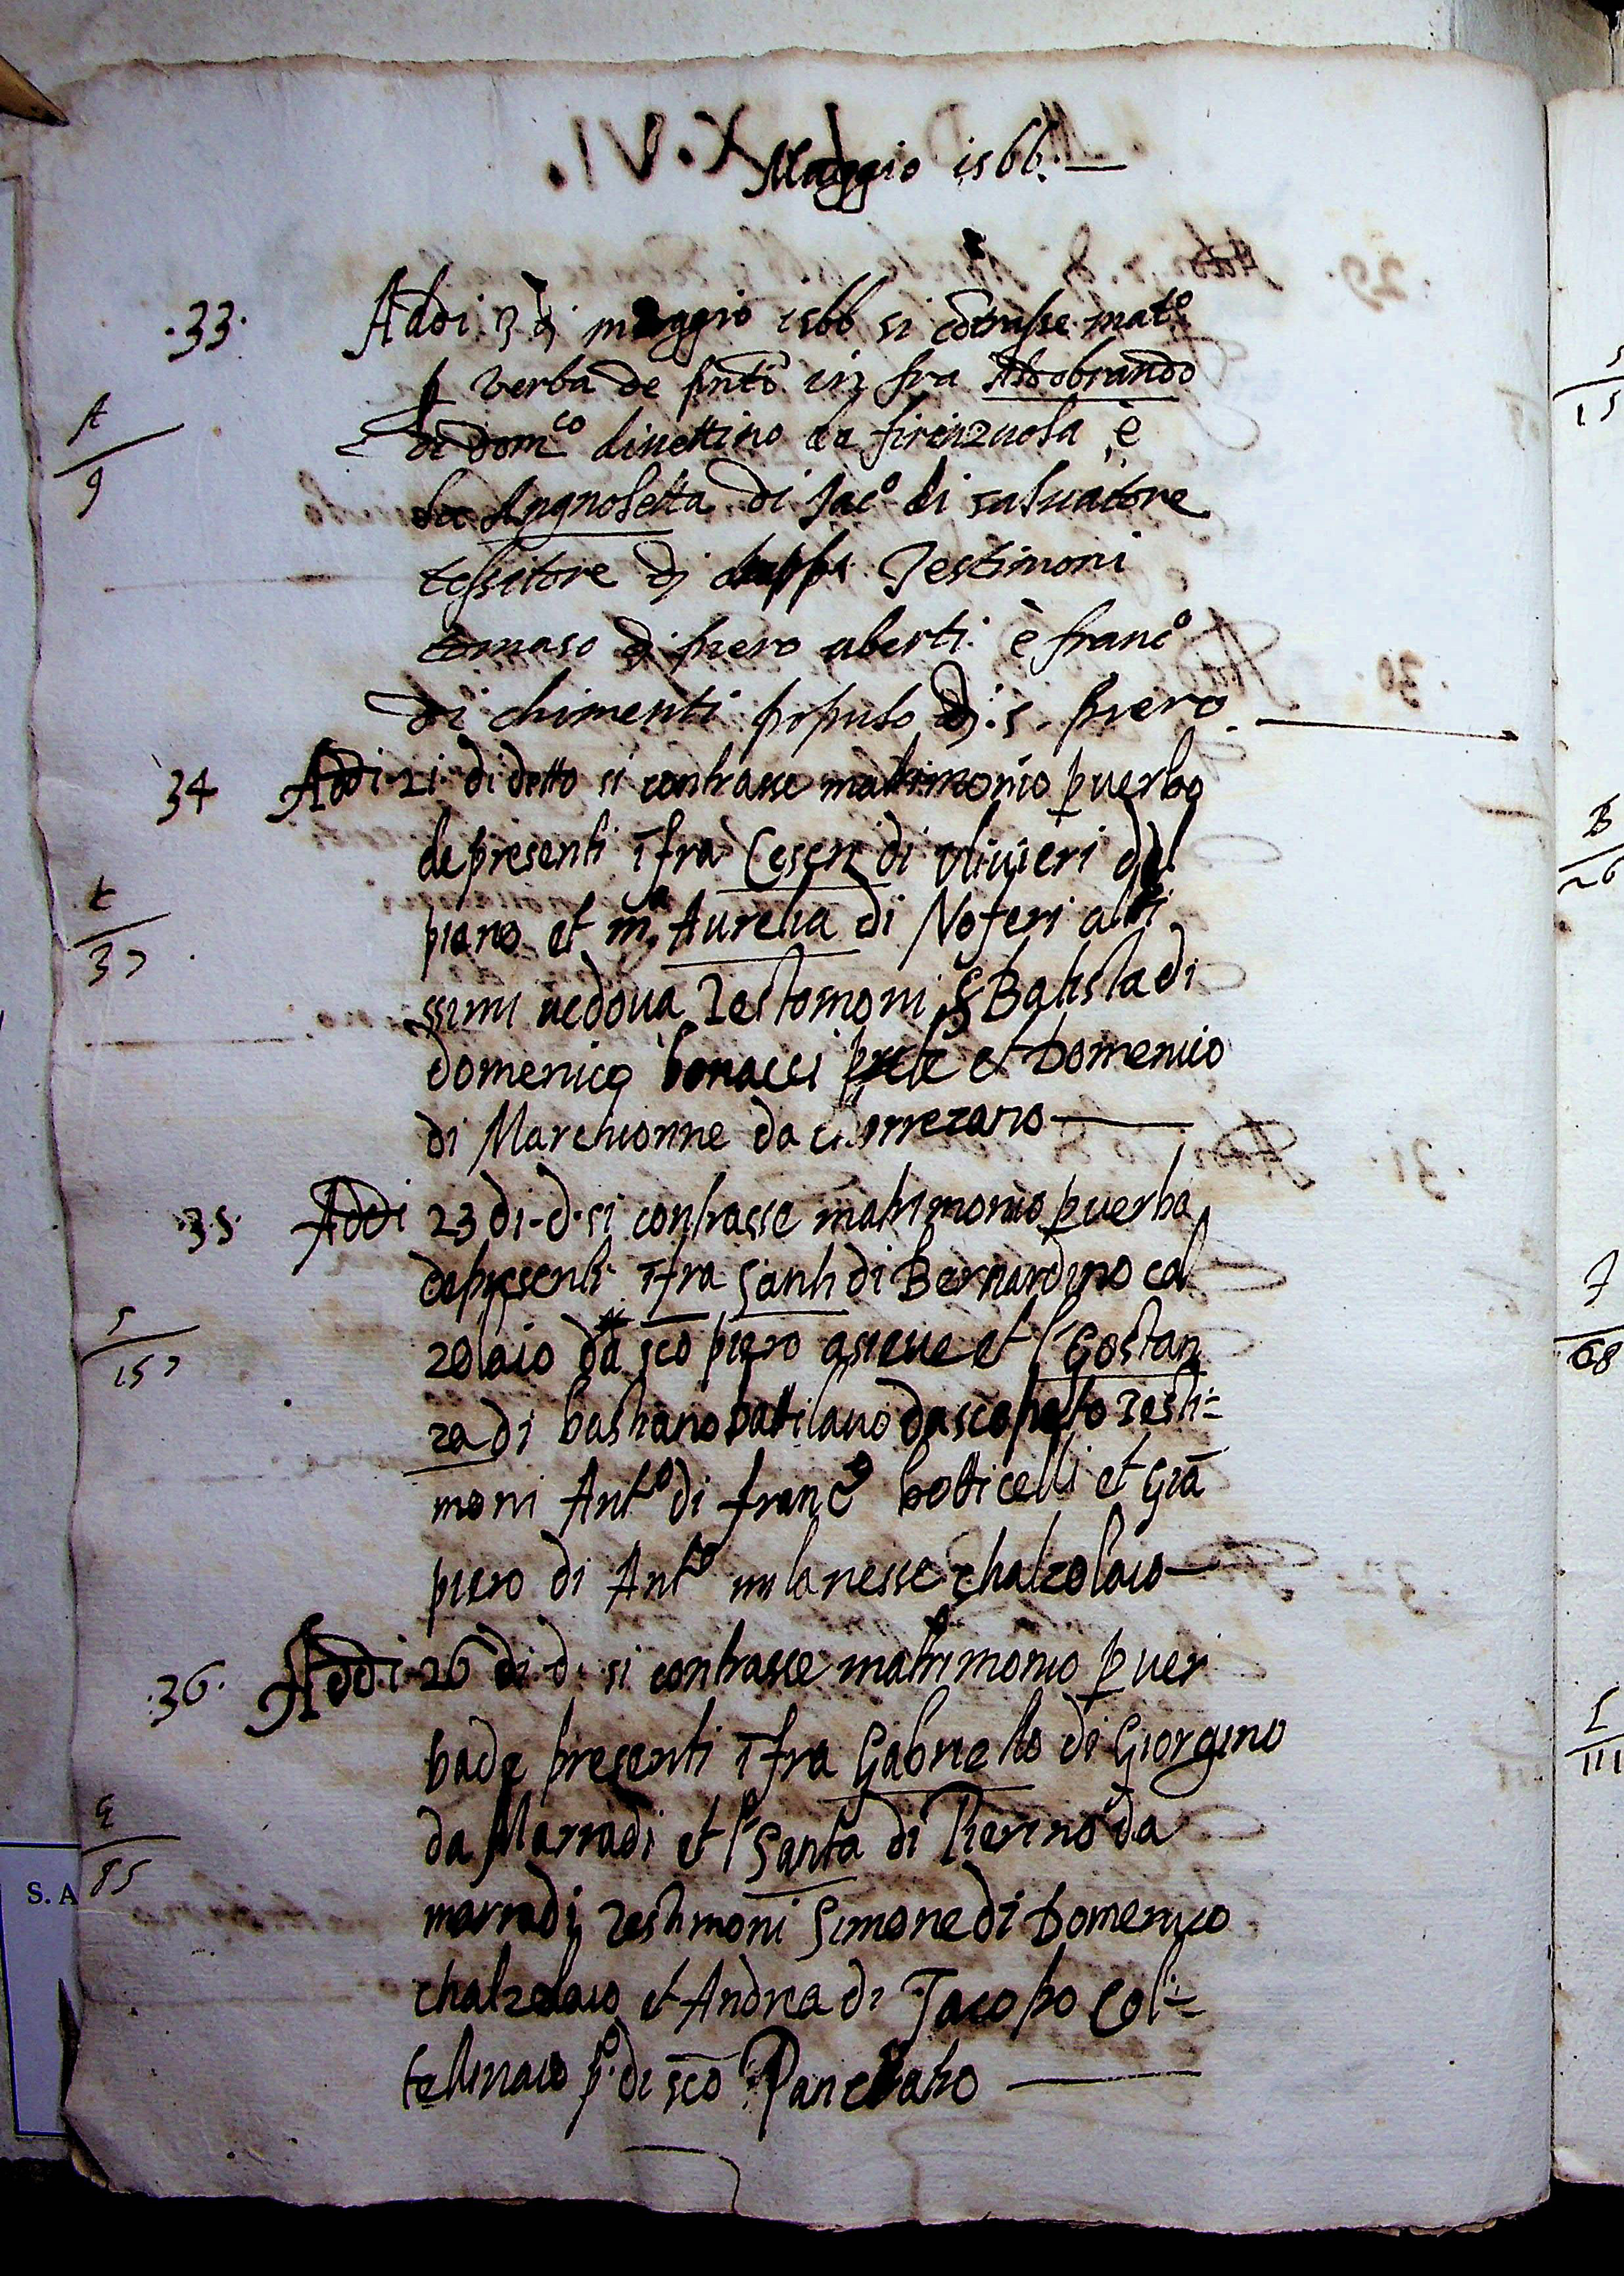 Maggio 1566.
.33. Addi 3 di maggio 1566 si cōtrasse mat.o
p verba de pn̄ti in fra Aldobrando
A
9
di dom.co divettino da firenzuola, è
la Angnoletta di Jac.o di salvatore
tessitore di drappi Testimoni
tomaso di piero uberti è franc.o
di chimenti popolo di .s. piero
34 Addi 21 di detto si contrasse matrimonio p verba
de presenti ī fra Ceseri di Ulivieri del
t
37
piano et m.a Aurelia di Noferi alti
ssimi vedova Testomoni S Batista di
domenico bonacci prete et Domenico
di Marchionne da
.35. Addi 23 di .d. si contrasse matrimonio p verba
de presenti ī fra Santi di Bernardino cal
S
157
zolaio da sc̄o piero a sieve et l Gostan
za di bastiano battilano da scopeto Testi=
moni Ant.o di franc.o botticelli et Giā
piero di Ant.o milanesse chalzolaio
.36. Addi 26 di .d. si contrasse matrimonio p ver
ba de presenti ī fra Gabriello di Giorgino
G
85
da Marradi et l Santa di Pierino da
marradi Testimoni Simone di Domenico
chalzolaio et Andrea di Jacopo Col=
tellinaio p.o di sc̄o Pancratio
S. A
S
15
B
26
J
68
L
111